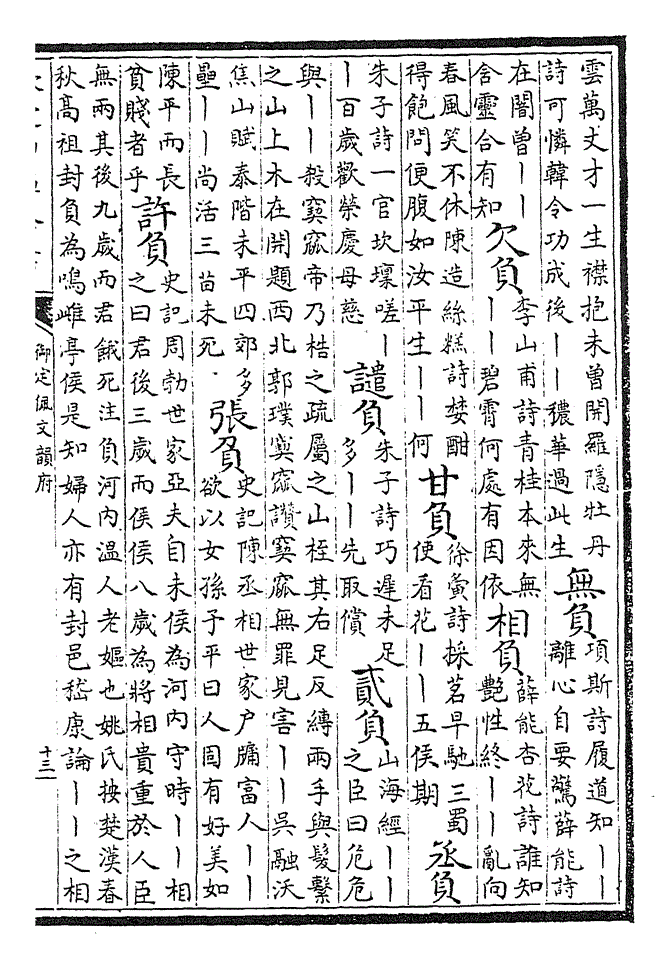 雲萬丈才一生襟抱未曾開羅隱牡丹
詩可憐韓令功成後丨丨穠華過此生
無負
項斯詩履道知丨丨
離心自要驚薛能詩
在闇曾丨丨
含靈合有知
欠負
李山甫詩青桂本來無
丨丨碧霄何處有因依
相負
薛能杏花詩誰知
艷性終丨丨亂向
春風笑不休陳造絲糕詩婪酣
得飽問便腹如汝平生丨丨何
甘負
徐夤詩採茗早馳三蜀
使看花丨丨五侯期
丞負
朱子詩一官坎壈嗟丨
丨百歲歡榮慶母慈
譴負
朱子詩巧遲未足
多丨丨先取償
貳負
山海經丨丨
之臣曰危危
與丨丨殺窫窳帝乃梏之疏屬之山桎其右足反縛兩手與髮繫
之山上木在開題西北郭璞窫窳讚窫窳無罪見害丨丨吳融沃
焦山賦泰階未平四郊多
壘丨丨尚活三苗未死
張負
史記陳丞相世家户牖富人丨丨
欲以女孫子平曰人固有好美如
陳平而長
貧賤者乎
許負
史記周勃世家亞夫自未侯為河内守時丨丨相
之曰君後三歲而侯侯八歲為將相貴重於人臣
無兩其後九歲而君餓死注負河内溫人老嫗也姚氏按楚漢春
秋高祖封負為鳴雌亭侯是知婦人亦有封邑嵇康論丨丨之相
御定佩文韻府
十三